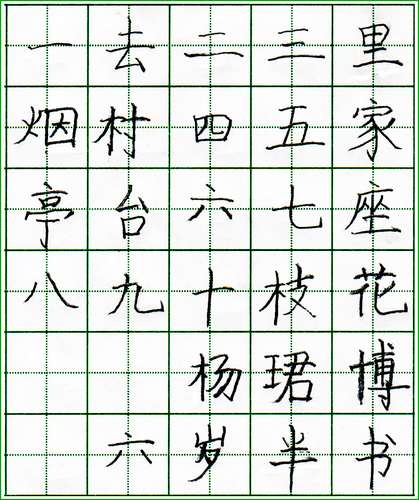 一去二三里
烟村四五家
亭台六七座
八九十枝花
杨珺博
六岁半书